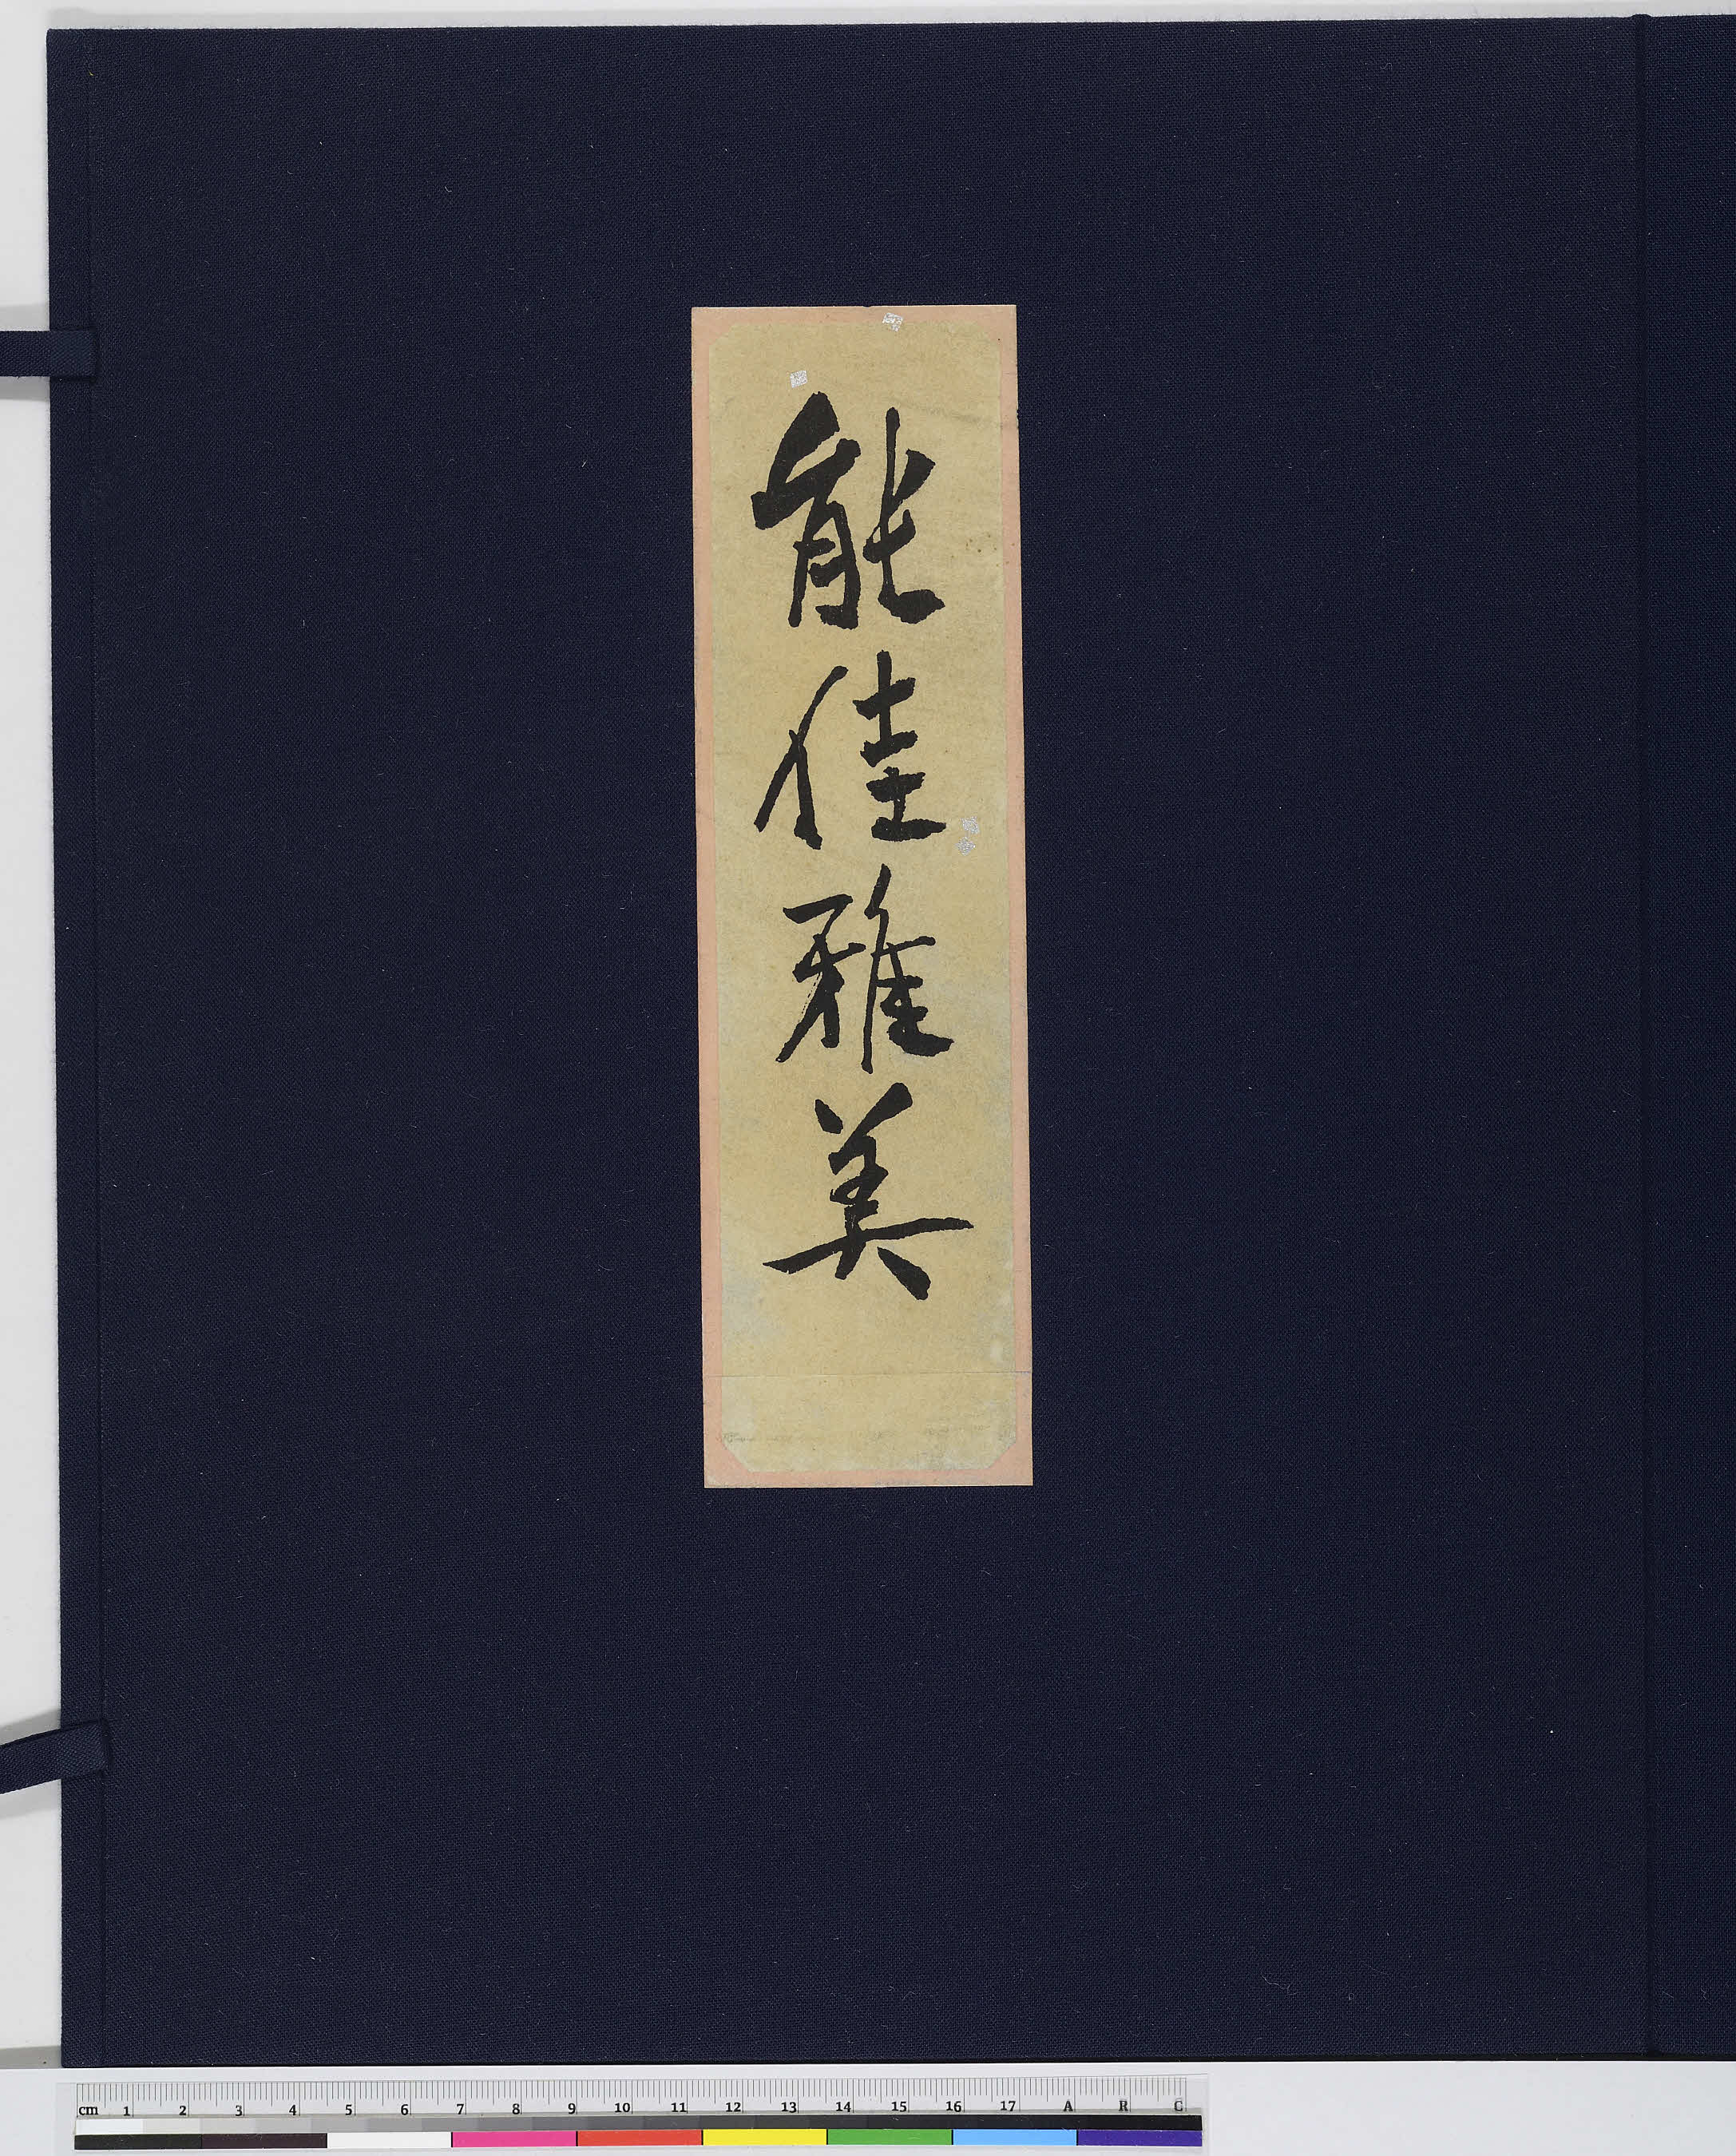 能佳雅美
cm 1 2 3 4 5 6 7 8 9 10 11 12 13 14 15 16 17 A R C